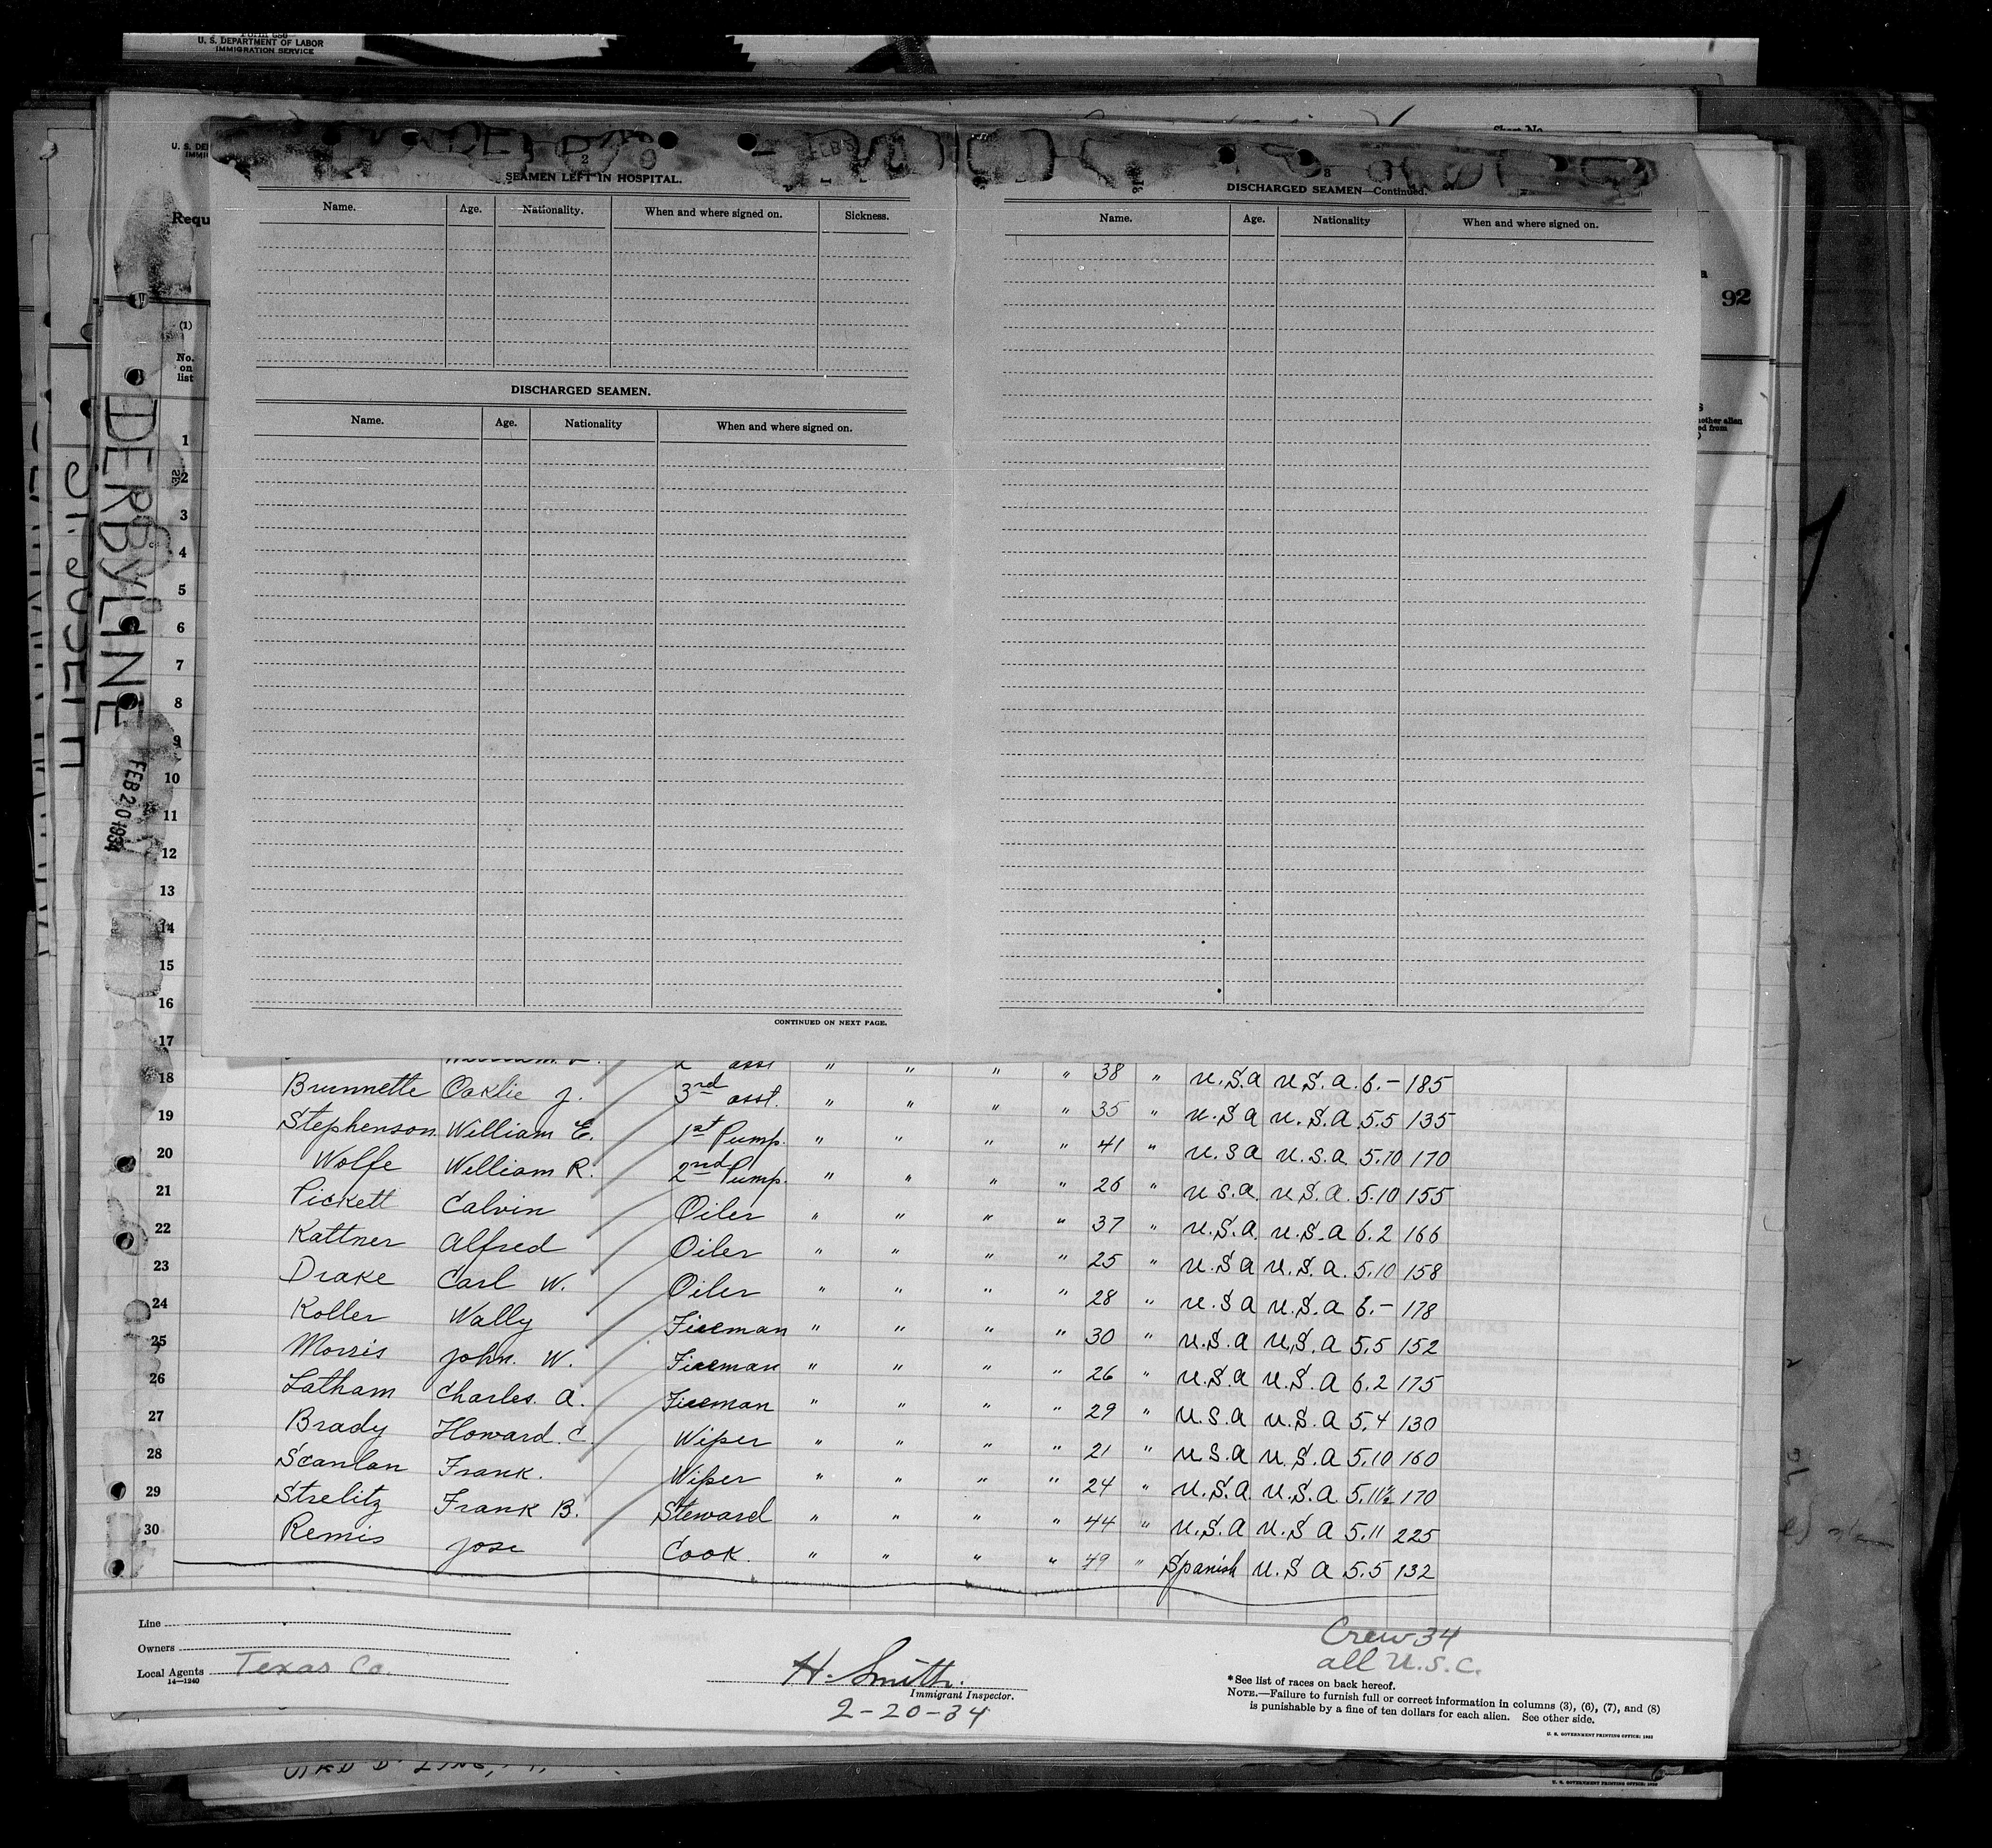 Form 686
U. S. DEPARTMENT OF LABOR
IMMIGRATION SERVICE
Sheet No.
U. S. DE
IMMI
Requ
92
(1)
No.
on
list
DERBYLINE
FEB 20 1934
ST. JOSEPH
2
SEAMEN LEFT IN HOSPITAL.
Name. Age. Nationality. When and where signed on. Sickness.
DISCHARGED SEAMEN.
Name. Age. Nationality When and where signed on.
CONTINUED ON NEXT PAGE.
DISCHARGED SEAMEN—Continued.
Name. Age. Nationality When and where signed on.
1
2
3
4
5
6
7
8
9
10
11
12
13
14
15
16
17 2 asst " " " " 38 " U.S.A U.S.A. 6.- 185
18 Brunnette Oaklie J. 3rd asst. " " " " 35 " U.S.A U.S.A 5.5 135
19 Stephenson William E. 1st Pump. " " " " 41 " U.S.A U.S.A 5.10 170
20 Wolfe William R. 2nd Pump. " " " " 26 " U.S.A. U.S.A. 5.10 155
21 Pickett Calvin Oiler " " " " 37 " U.S.A. U.S.A 6.2 166
22 Kattner Alfred Oiler " " " " 25 " U.S.A U.S.A. 5.10 158
23 Drake Carl W. Oiler " " " " 28 " U.S.A U.S.A. 6.- 178
24 Koller Wally Fireman " " " " 30 " U.S.A U.S.A 5.5 152
25 Morris John. W. Fireman " " " " 26 " U.S.A U.S.A 6.2 175
26 Latham Charles. A. Fireman " " " " 29 " U.S.A U.S.A 5.4 130
27 Brady Howard. C. Wiper " " " " 21 " U.S.A U.S.A 5.10 160
28 Scanlan Frank. Wiper " " " " 24 " U.S.A. U.S.A 5.11½ 170
29 Strelitz Frank B. Steward " " " " 44 " U.S.A U.S.A 5.11 225
30 Remis Jose Cook. " " " " 49 " Spanish U.S.A 5.5 132
Line
Owners
Local Agents Texas Co.
14—1240
H. Smith.
Immigrant Inspector.
2-20-34
Crew 34
all U.S.C.
*See list of races on back hereof.
NOTE.—Failure to furnish full or correct information in columns (3), (6), (7), and (8)
is punishable by a fine of ten dollars for each alien. See other side.
U. S. GOVERNMENT PRINTING OFFICE: 1932
U. S. GOVERNMENT PRINTING OFFICE: 1932